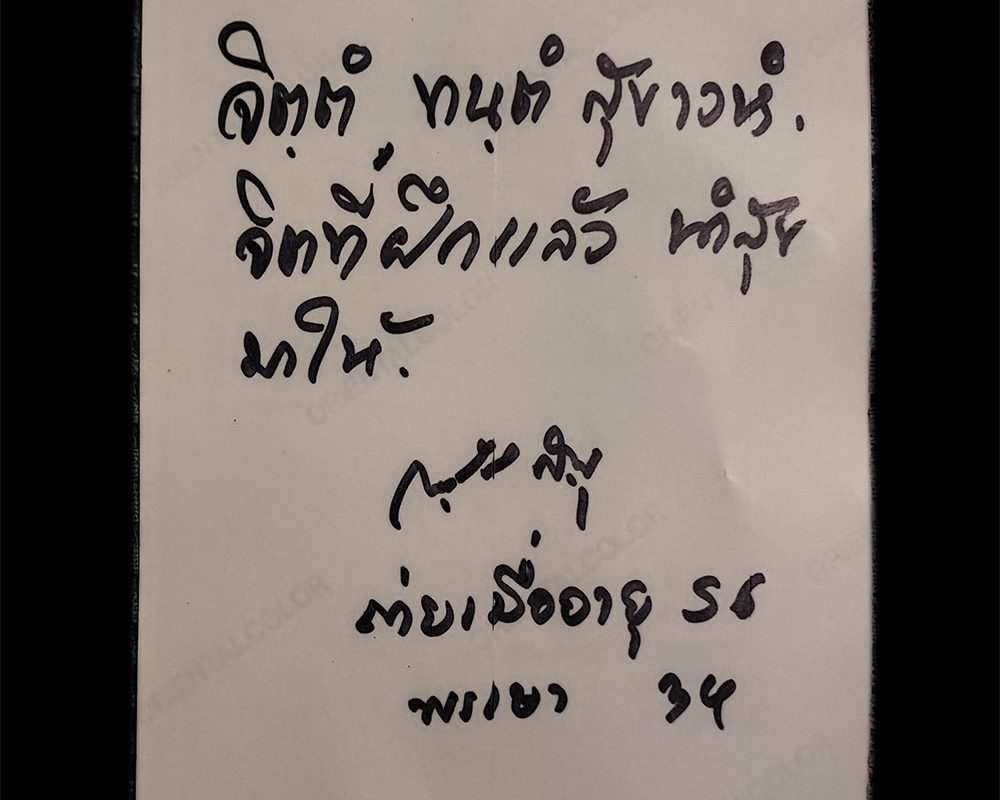 จิตฺตํ ทนฺตํ สุขาวหํ.
จิตที่ฝึกแล้ว นำสุข
มาให้.
ถ่ายเมื่ออายุ 56
พรรษา 34